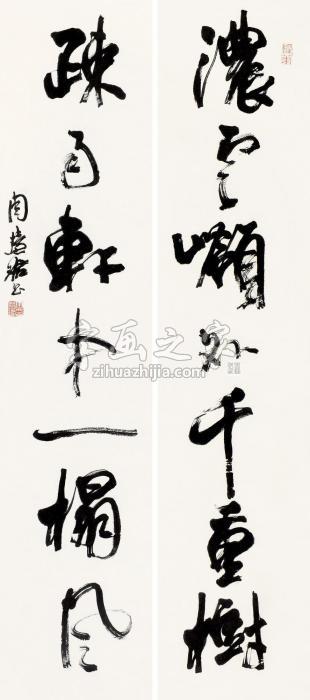 濃雲外千重樹
疎雨軒一榻風
周慧珺书
字画之家
zihuazhijia.com